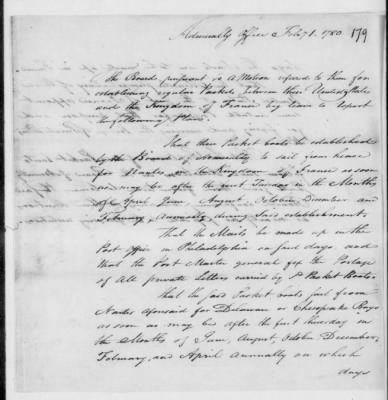 Admiralty Office Feby 1. 1780 179
The Board, pursuant to a Motion referred to them for
establishing regular Packets between these United States
and the Kingdom of France beg leave to Report
the following Plan.
That three Packet boats be established
by the Board of Admiralty to sail from hence
for Nantes in the Kingdom of France as soon
as may be after the first Tuesday in the Months
of April June, August, October, December and
February, Annually during said establishment
That the Mails be made up in the
Post Office in Philadelphia on said days and
that the Post Master general fix the Postage
of All private Letters carried by sd Packet Boats.
That the said Packet boats sail from
Nantes aforesaid for Delaware or Chesapeake Bays
as soon as may be after the first thursday in
the Months of June, August, October, December,
February, and April annually on which
days